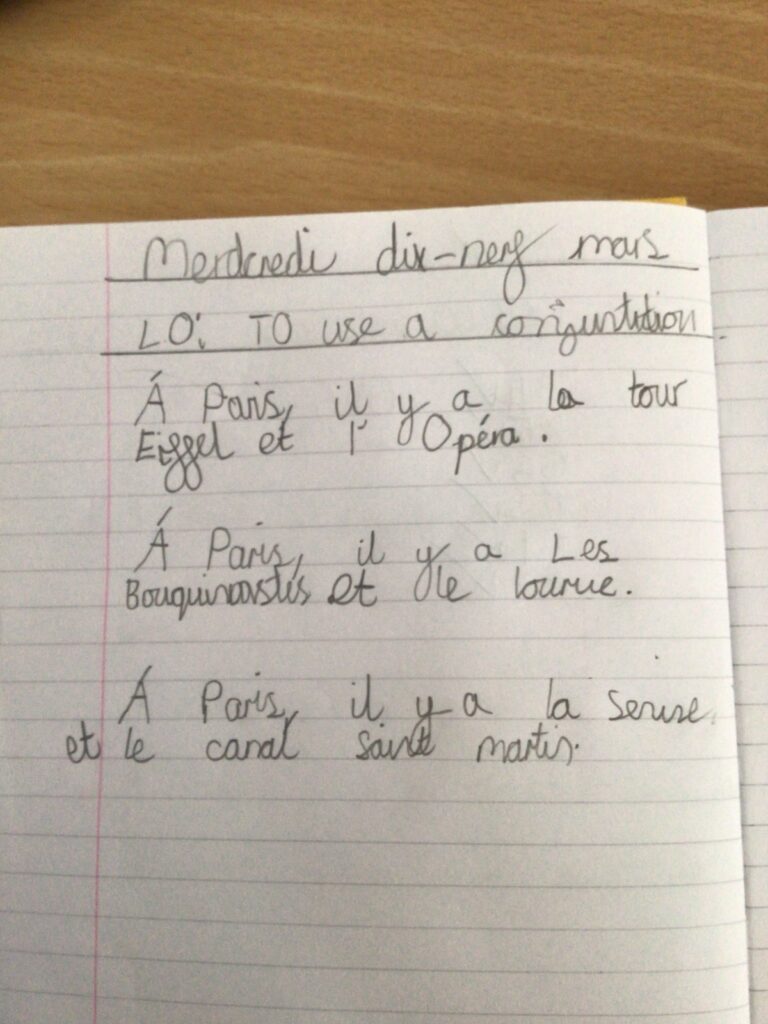 Merdcredi dix-neuf mars
LO: TO use a conjuntution
Á Paris, il y a la tour
Eiffel et l'Opéra.
Á Paris, il y a Les
Bouquinoistis et le lourue.
Á Paris, il y a la Seruse
et le canal saint martin.